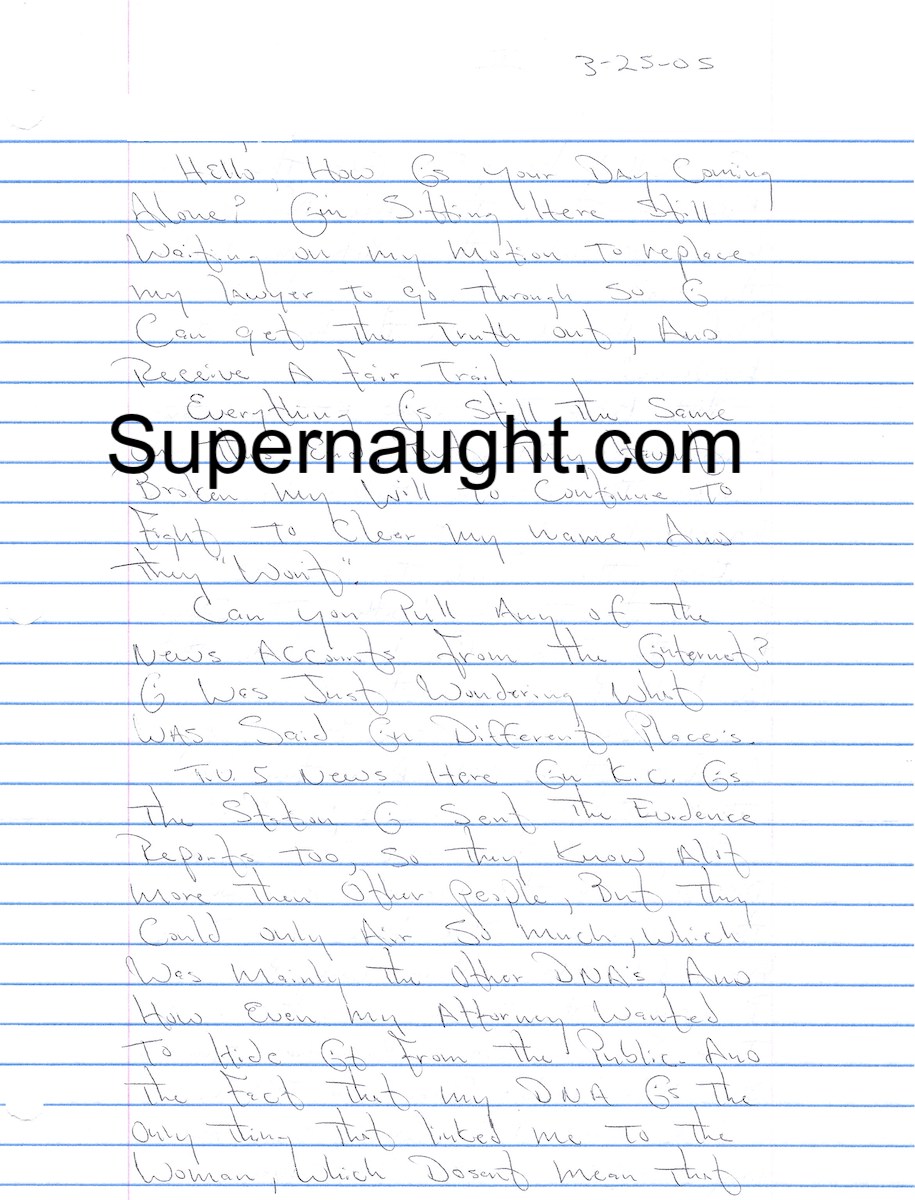 3-25-05
Hello, How Is your Day Coming
Alone? I'm Sitting Here Still
Waiting on my Motion To replace
my lawyer To go Through So I
Can get The Truth out, And
Receive A fair Trail.
Everything Is Still The Same
Supernaught.com
In The End, But They
Broken my Will To Continue To
Fight To Clear my name, And
they "Won't".
Can you Pull Any of The
News Accounts From The Internet?
I Was Just Wondering What
WAS Said In Different Place's.
T.V. 5 News Here In K.C. Is
The Station I Sent The Evidence
Reports Too, So They Know Alot
more Then Other people, But They
Could only Air So much, Which
Was Mainly The other DNA's, And
How Even my Attorney Wanted
To Hide It From The Public. And
The Fact That my DNA Is The
only thing That linked me To The
Woman, Which Dosent mean That